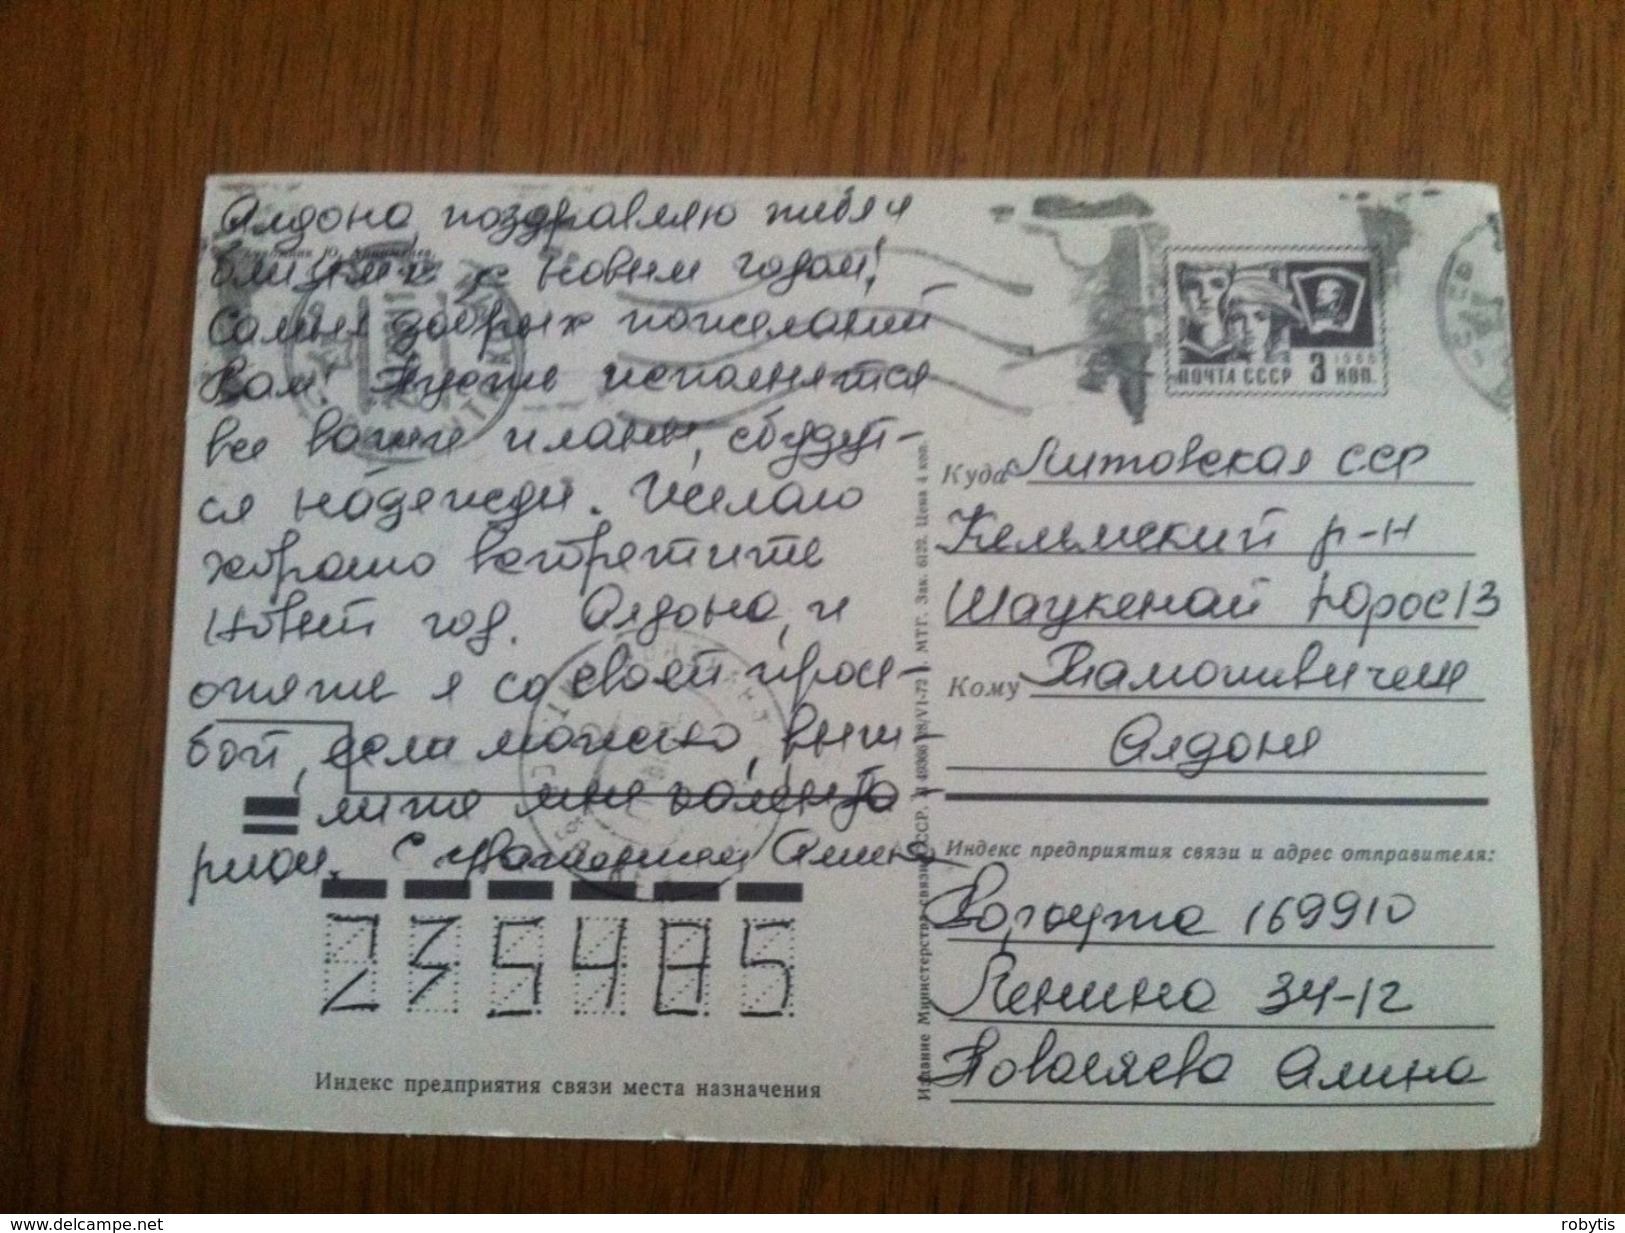 Алдона, поздравляю тебя и
близких с новым годом!
Самых добрых пожеланий
Вам! Пусть исполнятся
все ваши планы, сбудут-
ся надежды. Желаю
хорошо встретить
Новый год. Алдона, и
опять я со своей прось-
бой, если можно, выш-
лите мне календа-
рики. С уважением Алина
235485
Индекс предприятия связи места назначения
Издание Министерства связи СССР. 28/VI-72 г. МТГ. Зак. 6129. Цена 4 коп.
1966
ПОЧТА СССР 3 КОП.
Куда Литовская ССР
Кельмский р-н
Шаукенай Юрос 13
Кому
Алдоне
Индекс предприятия связи и адрес отправителя:
Воркута 169910
Ленина 34-12
Алина
delcampe.net
robytis